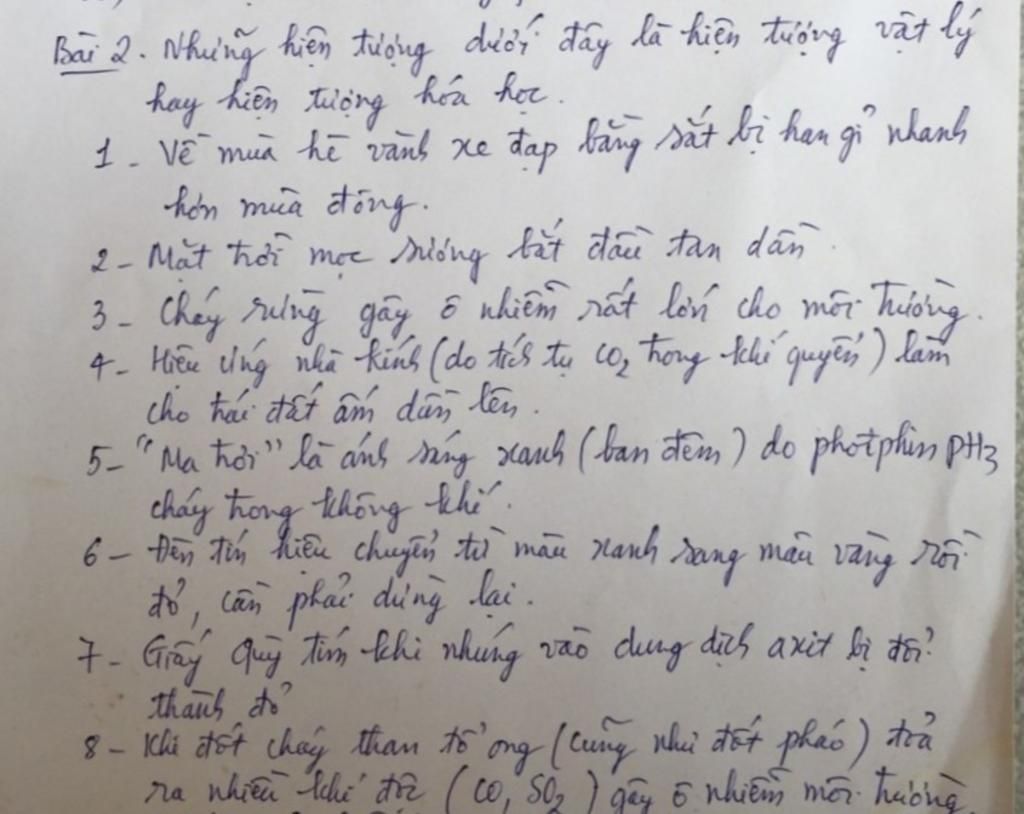 Bài 2. Những hiện tượng dưới đây là hiện tượng vật lý
hay hiện tượng hóa học.
1 - Về mùa hè vành xe đạp bằng sắt bị han gỉ nhanh
hơn mùa đông.
2 - Mặt trời mọc sương bắt đầu tan dần.
3 - Cháy rừng gây ô nhiễm rất lớn cho môi trường.
4 - Hiệu ứng nhà kính (do tích tụ CO2 trong khí quyển) làm
cho trái đất ấm dần lên.
5 - "Ma trơi" là ánh sáng xanh (ban đêm) do photphin PH3
cháy trong không khí.
6 - Đèn tín hiệu chuyển từ màu xanh sang màu vàng rồi
đỏ, cần phải dừng lại.
7 - Giấy quỳ tím khi nhúng vào dung dịch axit bị đổi
thành đỏ
8 - Khi đốt cháy than tổ ong (cũng như đốt pháo) tỏa
ra nhiều khí độc (CO, SO2) gây ô nhiễm môi trường.